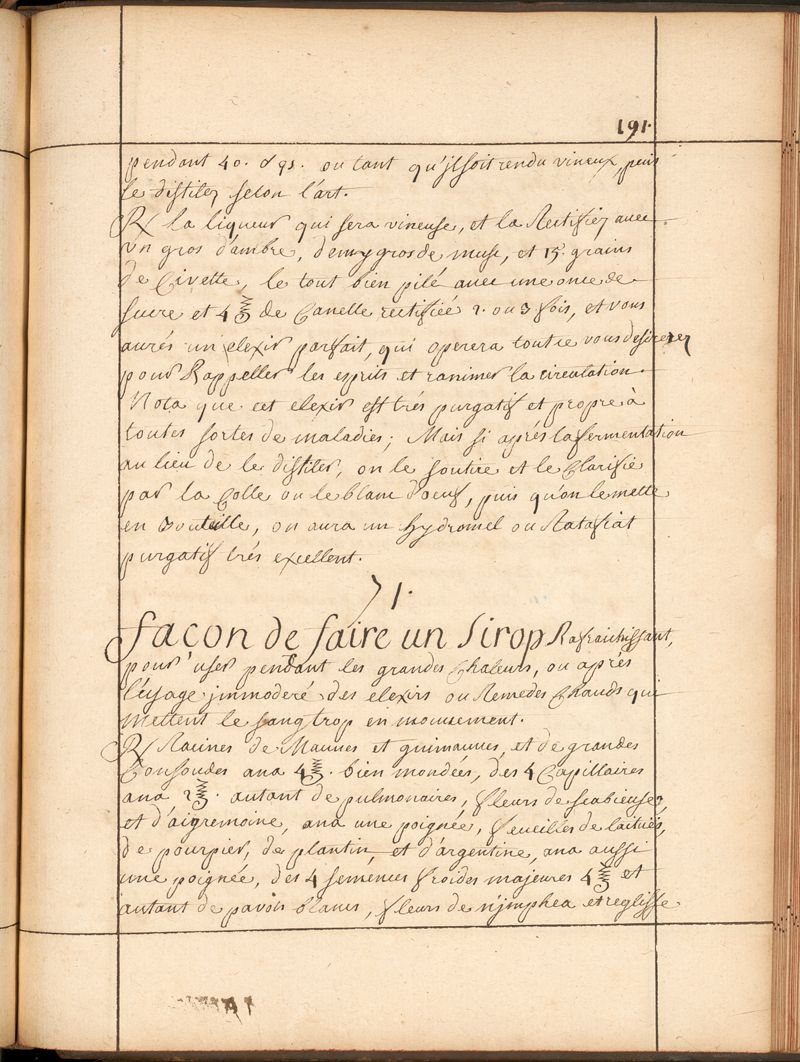 191.
pendant 40. jrs. ou tant qu'jl soit rendu vineux, puis
le distiler selon l'art.
℞ la liqueur qui sera vineuse, et la Rectifiéz avec
vn gros d'ambre, demy gros de musc, et 15. grains
de Civette, le tout bien pilé avec une once de
sucre et 4 ℥ de Canelle rectifiée 2. ou 3 fois, et vous
aurés un elexir parfait, qui operera toutce vous desirerez
pour Rappeller les esprits et ranimer la circulation.
Nota que cet elexir est trés purgatif et propre à
toutes sortes de maladies; Mais si aprés la fermentation
au lieu de le distiler, on le soutire et le Clarifie
par la Colle ou le blanc d'oeuf, puis qu'on le mette
en Bouteille, on aura un hydromel ou Ratafiat
purgatif trés excellent.
71.
façon de faire un Sirop Rafraichissant,
pour user pendant les grandes Chaleurs, ou aprés
l'usage jmmoderé des elexirs ou Remedes Chauds qui
mettent le sang trop en mouvement.
℞ Racines de Mauves et guimauves, et de grandes
Consoudes ana 4 ℥. bien mondées, des 4 Capillaires
ana 2 ℥. autant de pulmonaires, fleurs de scabieuses,
et d'aigremoine, ana une poignée, feueilles de laitués,
de pourpier, de plantin, et d'argentine, ana aussi
une poignée, des 4 semences froides majeures 4 ℥ et
autant de pavots blancs, fleurs de nymphea et reglisse